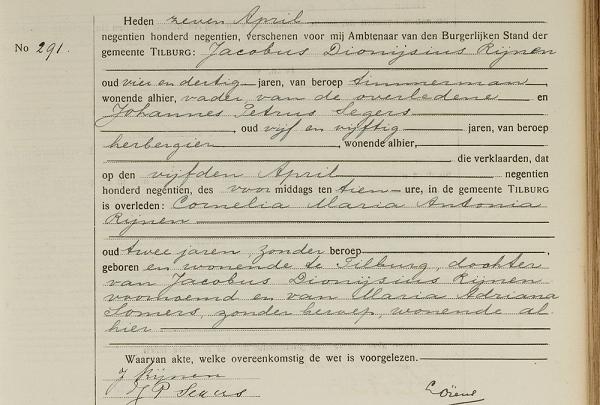 Heden zeven April
negentien honderd negentien, verschenen voor mij Ambtenaar van den Burgerlijken Stand der
No 291.
gemeente TILBURG: Jacobus Dionijsius Rijnen
oud vier en dertig jaren, van beroep timmerman,
wonende alhier, vader van de overledene en
Johannes Petrus Segers
, oud vijf en vijftig jaren, van beroep
herbergier, wonende alhier,
die verklaarden, dat
op den vijfden April negentien
honderd negentien, des voor middags ten tien ure, in de gemeente TILBURG
is overleden: Cornelia Maria Antonia
Rijnen
oud twee jaren, zonder beroep,
geboren en wonende te Tilburg, dochter
van Jacobus Dionijsius Rijnen
voornoemd en van Maria Adriana
Somers, zonder beroep, wonende al-
hier
Waarvan akte, welke overeenkomstig de wet is voorgelezen.
J Rijnen
J P Segers